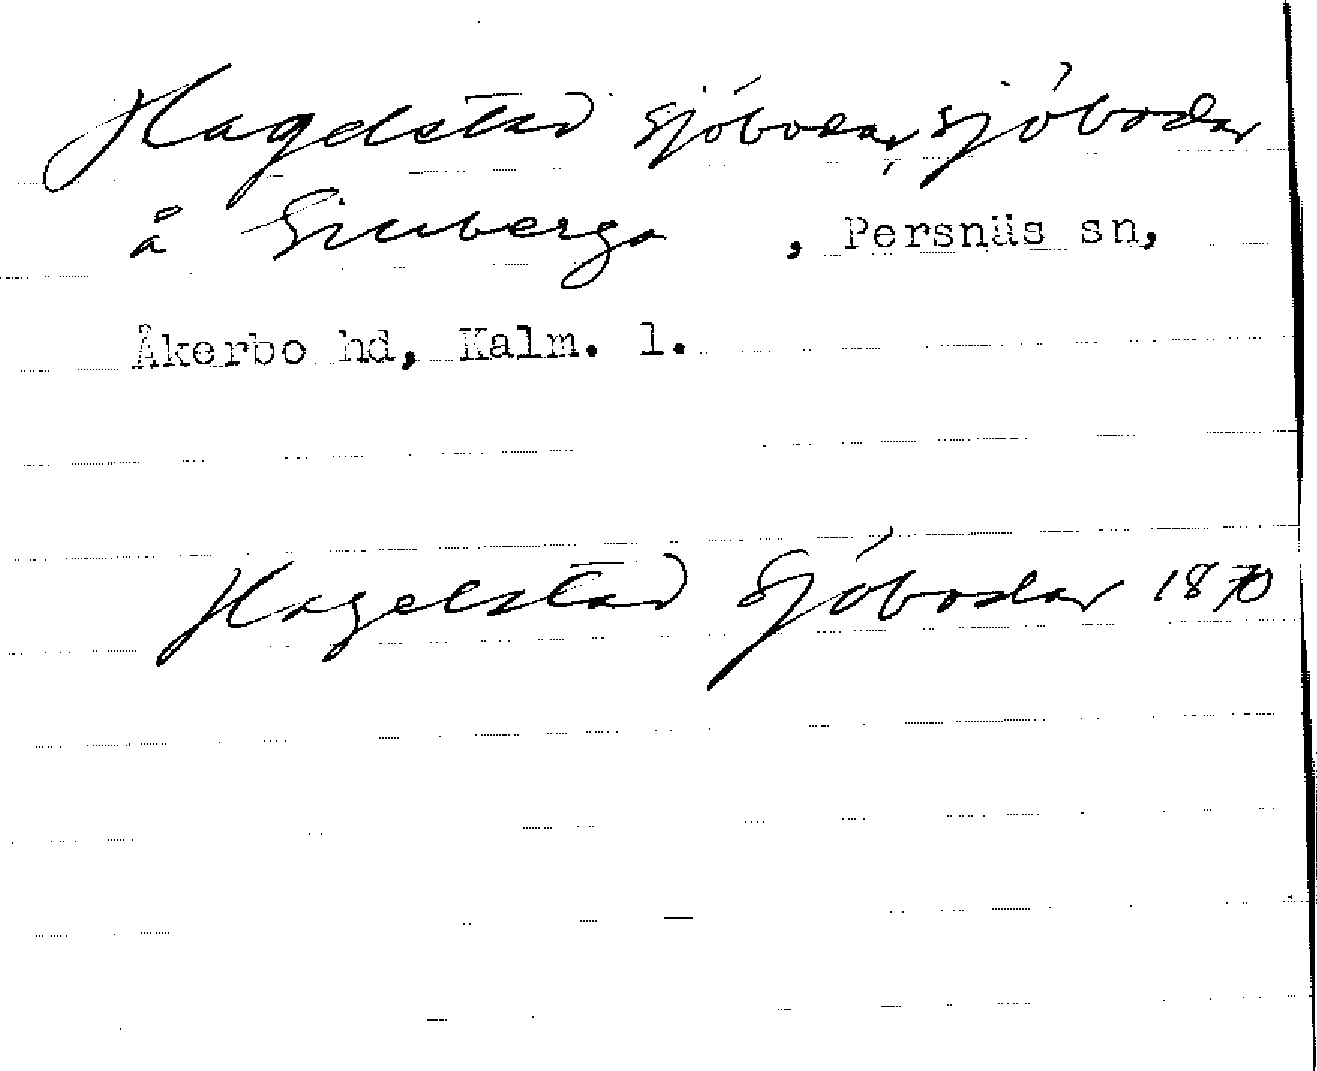 Hagelstad sjöbodar, sjöbodar
å , Persnäs sn,
Åkerbo hd, Kalm. l.
Hagelstad Sjöbodar 1870